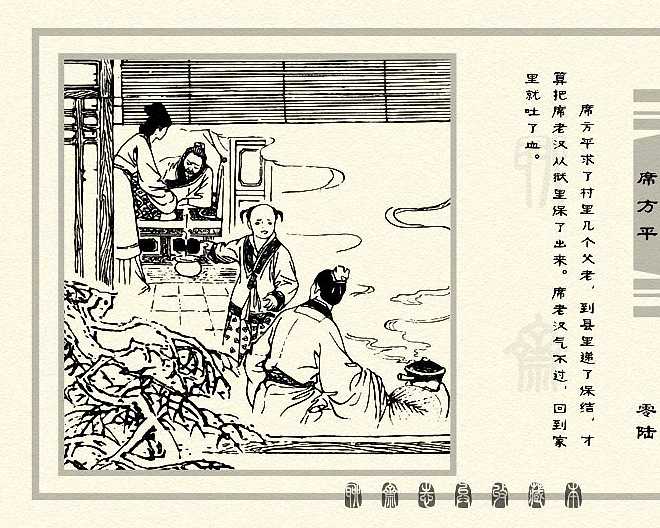 席方平求了村里几个父老，到县里递了保结，才
算把席老汉从狱里保了出来。席老汉气不过，回到家
里就吐了血。
席方平
零陆